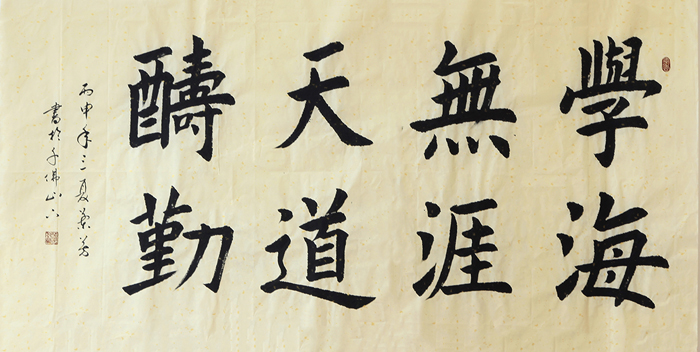 學海
無涯
天道
醻勤
丙申年三夏芳
書於千佛山下